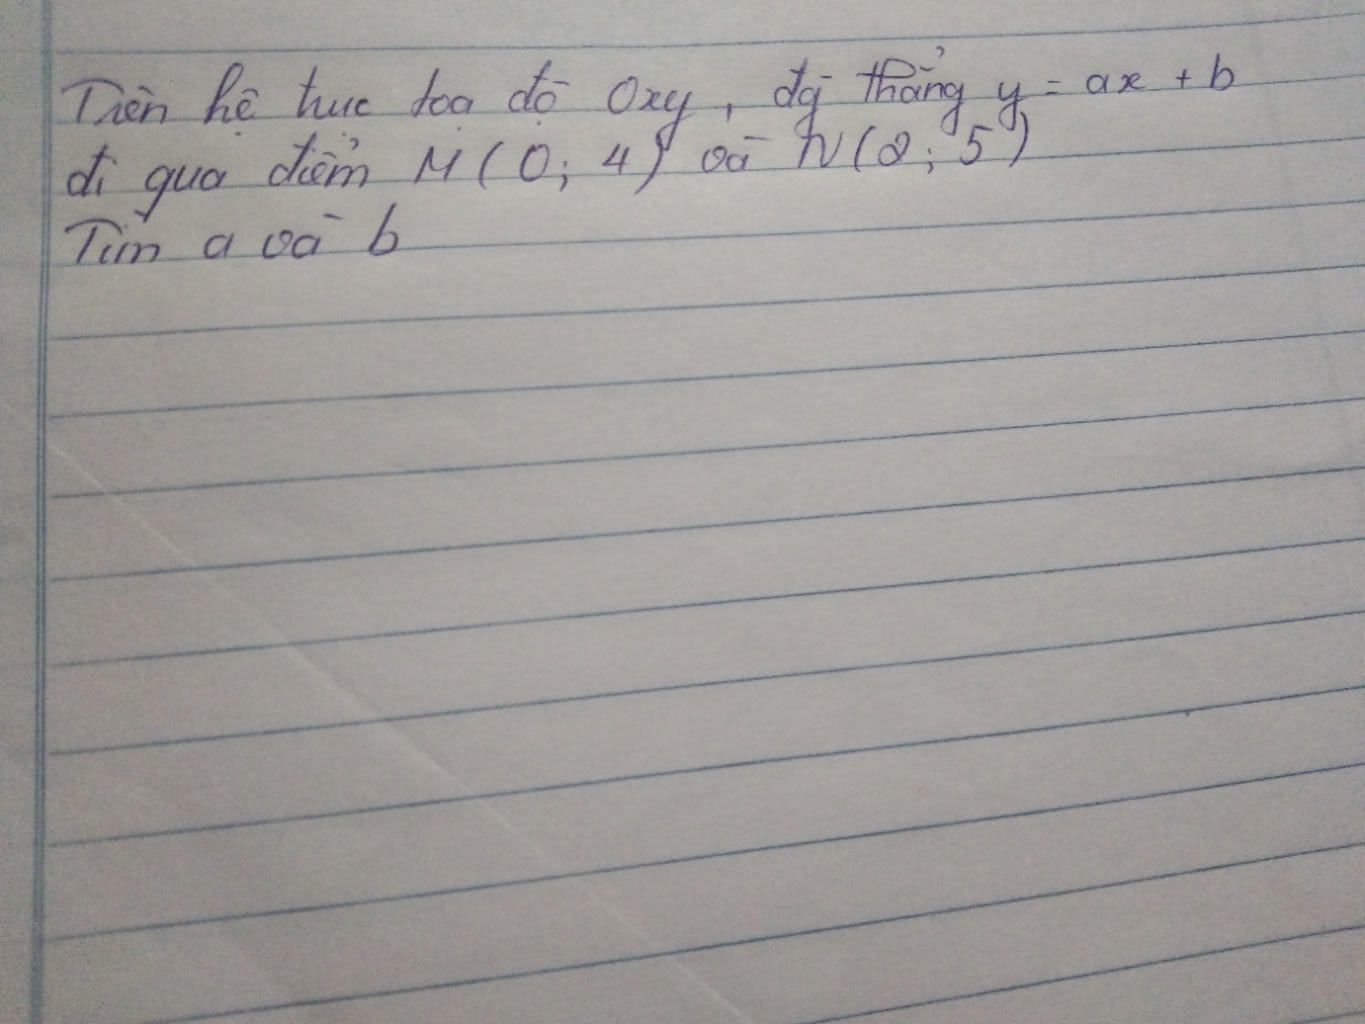 Trên hệ trục toạ độ Oxy, đg thẳng y = ax + b
đi qua điểm M (0; 4) và N (2; 5)
Tìm a và b